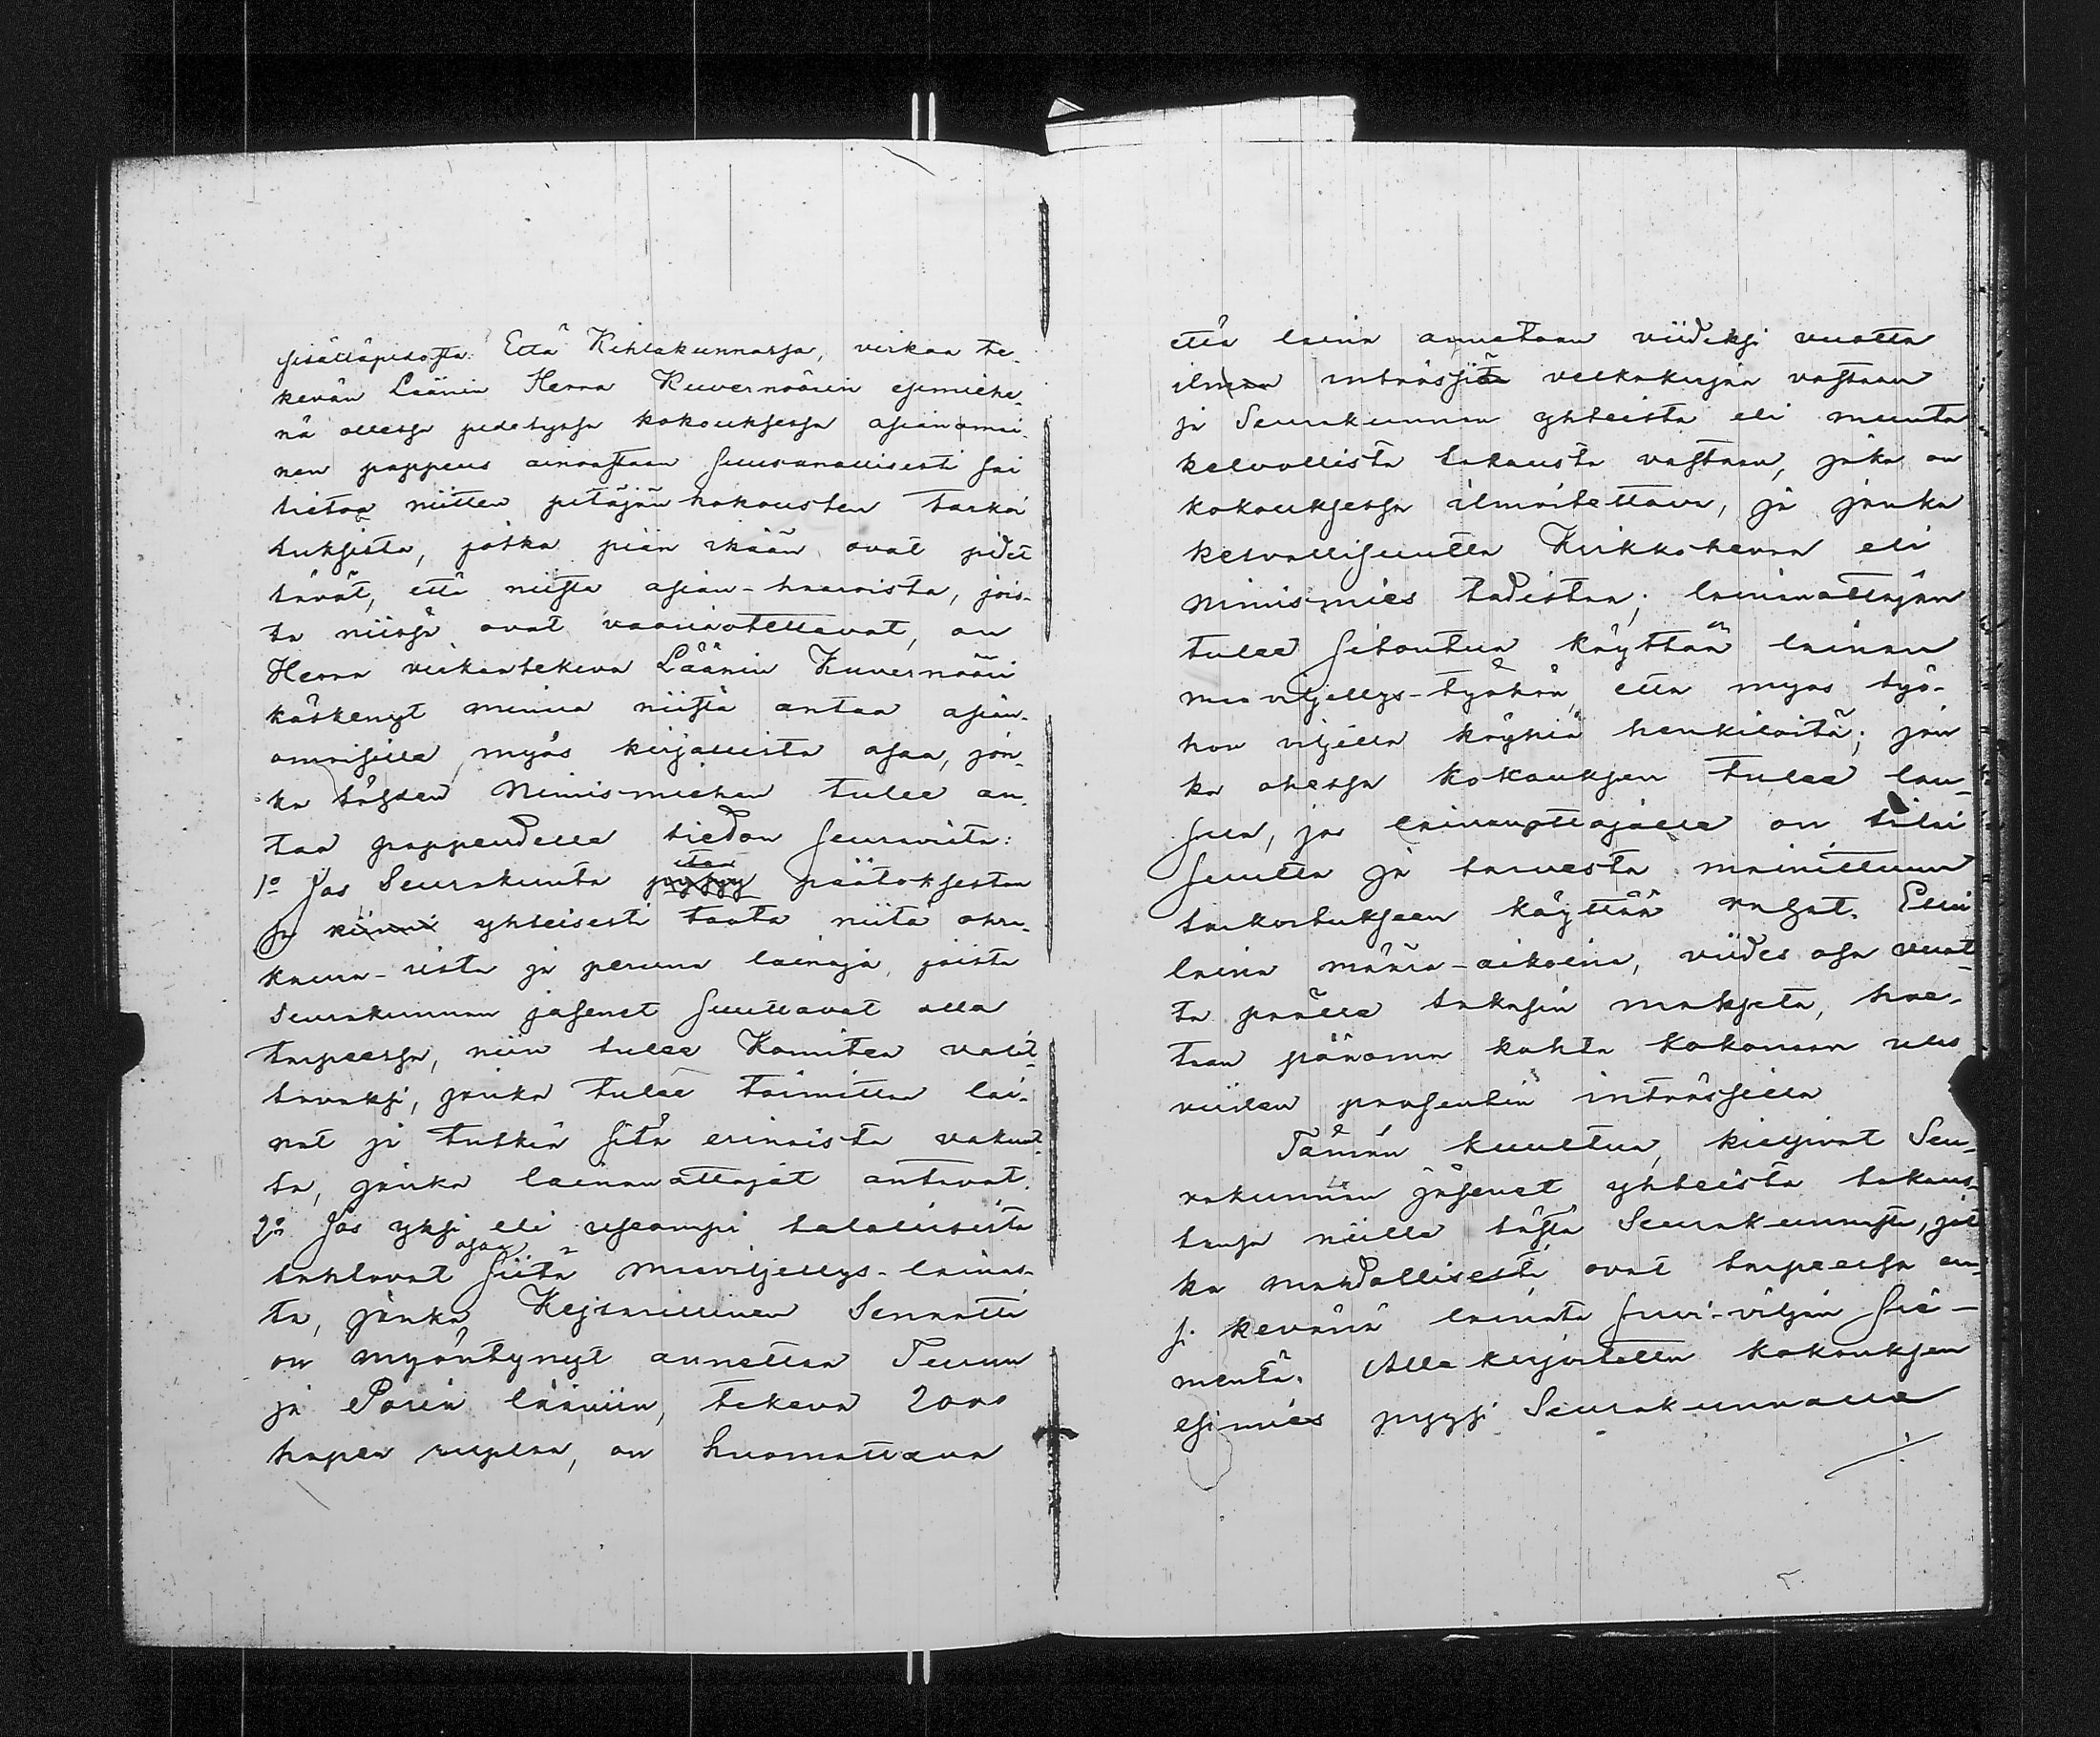 sisälläpidosta: Että Kihlakunnassa, virkaa te-
kevän Läänin Herra Kuvernöörin esimiehe-
nä ollessa pidetyssä kokouksessa asianomai-
nen pappeus ainoastaan suusanallisesti sai
tietoa niitten pitäjän kokousten tarkoi
tuksista, jotka pian ikään ovat pidet
tävät, että niistä asian-haaroista, jois-
ta niissä ovat vaariinotettavat, on
Herra virkaatekevä Läänin Kuvernööri
käskenyt minua niistä antaa asian-
omaisille myös kirjallista osaa, jon-
ka tästen Nimismiehen tulee an-
taa pappeudelle tiedon seuravista:
1o Jos Seurakunta itse päätöksestan
ja yhteisesti taata niitä ohra
kaura-ista ja peruna lainoja, joista
Seurakunnan jäsenet suuttavat olla
tarpeessa, niin tulee Komitea valit-
tavaksi, jonka tulee toimittaa lai-
nat ja tutkia sitä erinäistä vakuut-
ta, jonka lainanottajat antavat.
2o Jos yksi eli useampi talollisista
tahtovat osaa siitä maaviljellys-lainas-
ta, jonka Kejsarillinen Senaatti
on myöntynyt annettaa Turun
ja Porin lääniin, tekevä 2000
hopea ruplaa, on huomattava
että laina annetaan viideksi vuotta
ilman inträssiä velkakirjaa vastaan
ja Seurakunnan yhteistä eli muuta
kelvollista takausta vastaan, joka on
kokouksessa ilmoitettava, ja jonka
kelvollisuutta Kirkkoherra eli
Nimismies todistaa; lainanottajan
tulee sitoutua käyttää lainan
maaviljellys-työhön, että myös työ-
hön viljellä köyhiä henkilöitä; jon
ka ohessa kokouksen tulee lau-
sua, jos lainanottajalla on tilai
suutta ja tarvesta mainittuun
tarkoitukseen käyttää rahat. Ellei
laina määrä-aikoina, viides osa vuot-
ta päälle takasin makseta, hae-
taan pääoma kohta kokonaan ulos
viiden prosentin inträssillä
Tämän kuultua, kielsivat Seu-
rakunnan jäsenet yhteistä takaus-
tansa niille tästä Seurakunnasta, jot
ka mahdollisesti ovat tarpeessa en-
si keväänä lainata suvi-viljan sie-
mentä. Alla kirjoitettu kokouksen
esimies pyysi Seurakunnalle
./.